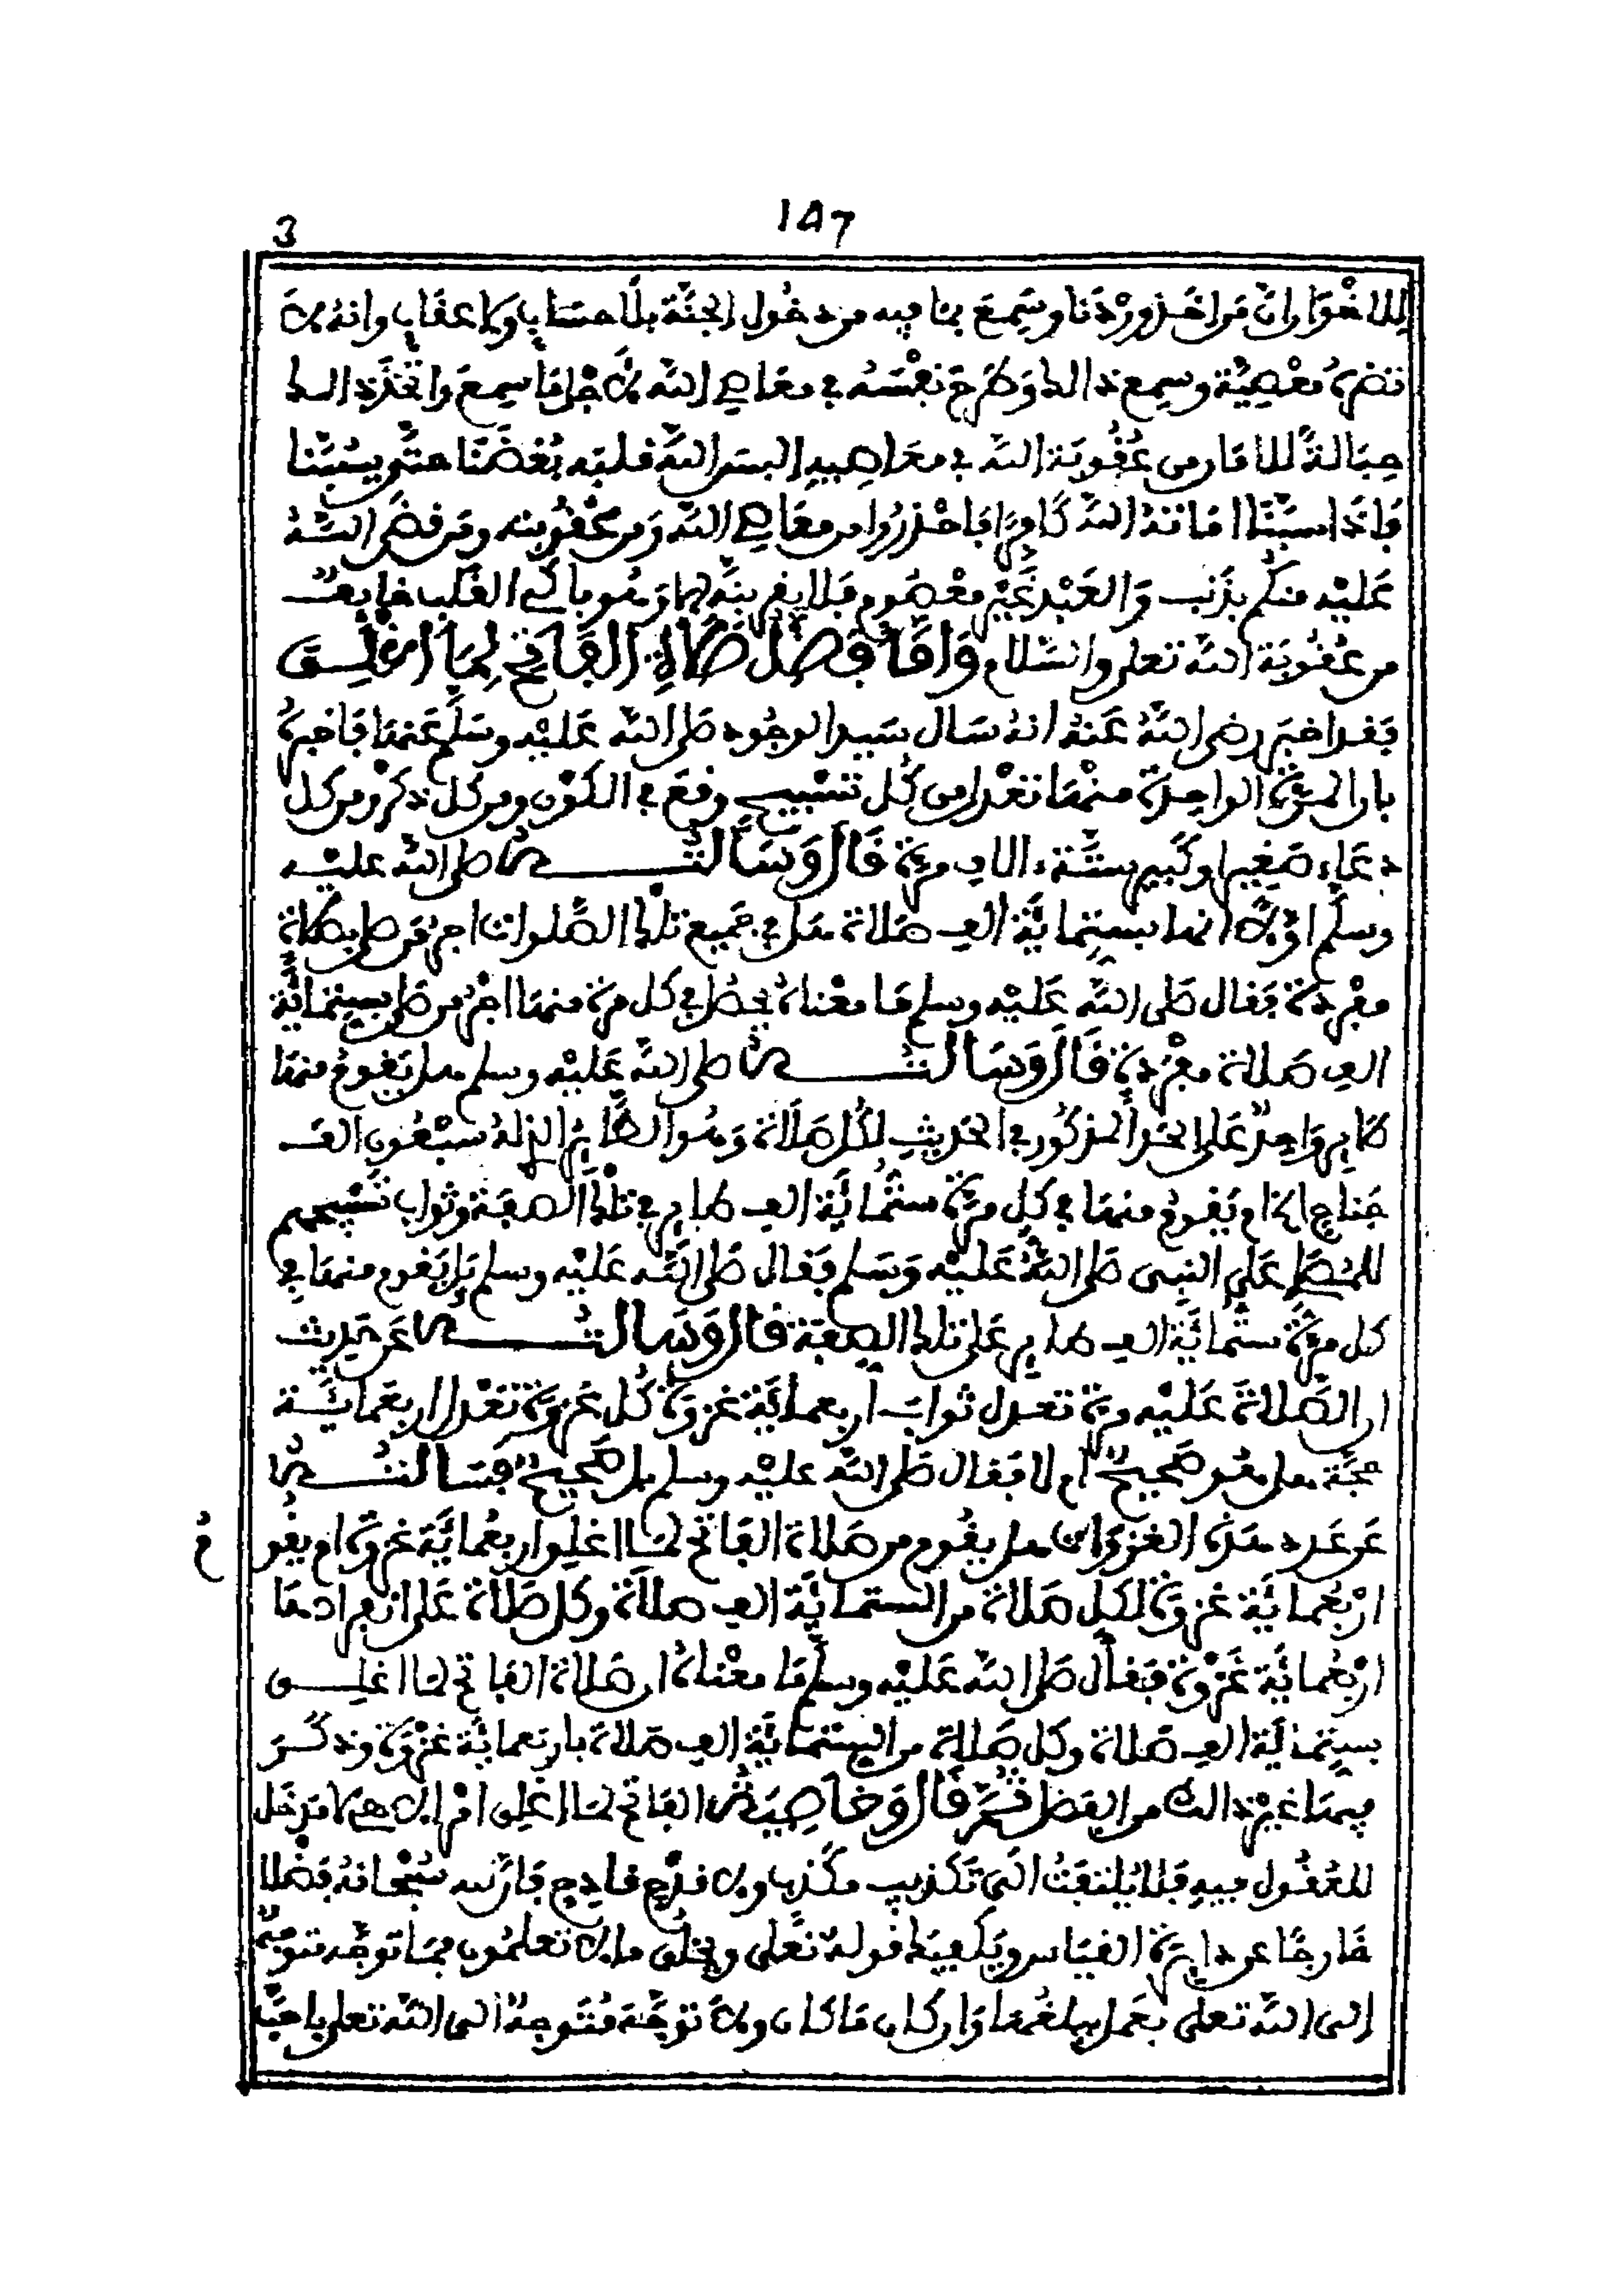 147
3
للاخوان ان من اخذ وردنا وسمع بما فيه من دخول الجنة بلا حساب ولا عقاب وانه لا
تضره معصية وسمع ذالك وطرح نفسه في معاصي الله لاجل ما سمع واتخذ ذالك
حبالة للامان من عقوبة الله في معاصيه البس الله قلبه بغضنا حتى يسبنا
فاذا سبنا اماته الله كافرا فاحذروا من معاصي الله ومن عقوبته ومن قضى الله
عليه منكم بذنب والعبد غير معصوم فلا يقربنه الا وهو باكي القلب خايف
من عقوبة الله تعلى والسلام واما فضل صلاة الفاتح لما اغلق
فقد اخبر رضي الله عنه انه سال سيد الوجود صلى الله عليه وسلم عنها فاخبره
بان المرة الواحدة منها تعدل من كل تسبيح وقع في الكون ومن كل ذكر ومن كل
دعاء صغير او كبير ستة ءالاف مرة قال وسالته صلى الله عليه
وسلم اولا انها بستماية الف صلاة هل في جميع تلك الصلوات اجر من صلى بصلاة
مفردة فقال صلى الله عليه وسلم ما معناه يحصل في كل مرة منها اجر من صلى بستماية
الف صلاة مفردة قال وسالته صلى الله عليه وسلم هل يقوم منها
طاير واحد على الحد المذكور في الحديث لكل صلاة وهو الطاير الذي له سبعون الف
جناح الخ ام يقوم منها في كل مرة ستماية الف طاير في تلك الصفة وثواب تسبيحهم
للمصلي على النبي صلى الله عليه وسلم فقال صلى الله عليه وسلم بل يقوم منها في
كل مرة ستماية الف طاير على تلك الصفة قال وسالته عن حديث
ان الصلاة عليه مرة تعدل ثواب اربعماية غزوة كل غزوة تعدل اربعماية
حجة هل هو صحيح ام لا فقال صلى الله عليه وسلم بل صحيح فسالته
عن عدد هذه الغزوات هل يقوم من صلاة الفاتح لما اغلق اربعماية غزوة ام يقو م
اربعماية غزوة لكل صلاة من الستماية الف صلاة وكل صلاة على انفرادها
اربعماية غزوة فقال صلى الله عليه وسلم ما معناه ان صلاة الفاتح لما اغلق
بستماية الف صلاة وكل صلاة من الستماية الف صلاة باربعماية غزوة وذكر
فيها غير ذالك من الفضل ثم قال وخاصية الفاتح لما اغلق امر الاهي لا مدخل
للعقول فيه فلا يلتفت الى تكذيب مكذب ولا قدح قادح فان لله سبحانه فضلا
خارجا عن دايرة القياس ويكفيك قوله تعلى ويخلق ما لا تعلمون فما توجه متوجه
الى الله تعلى بعمل يبلغها وان كان ما كان ولا توجه متوجه الى الله تعلى باحب